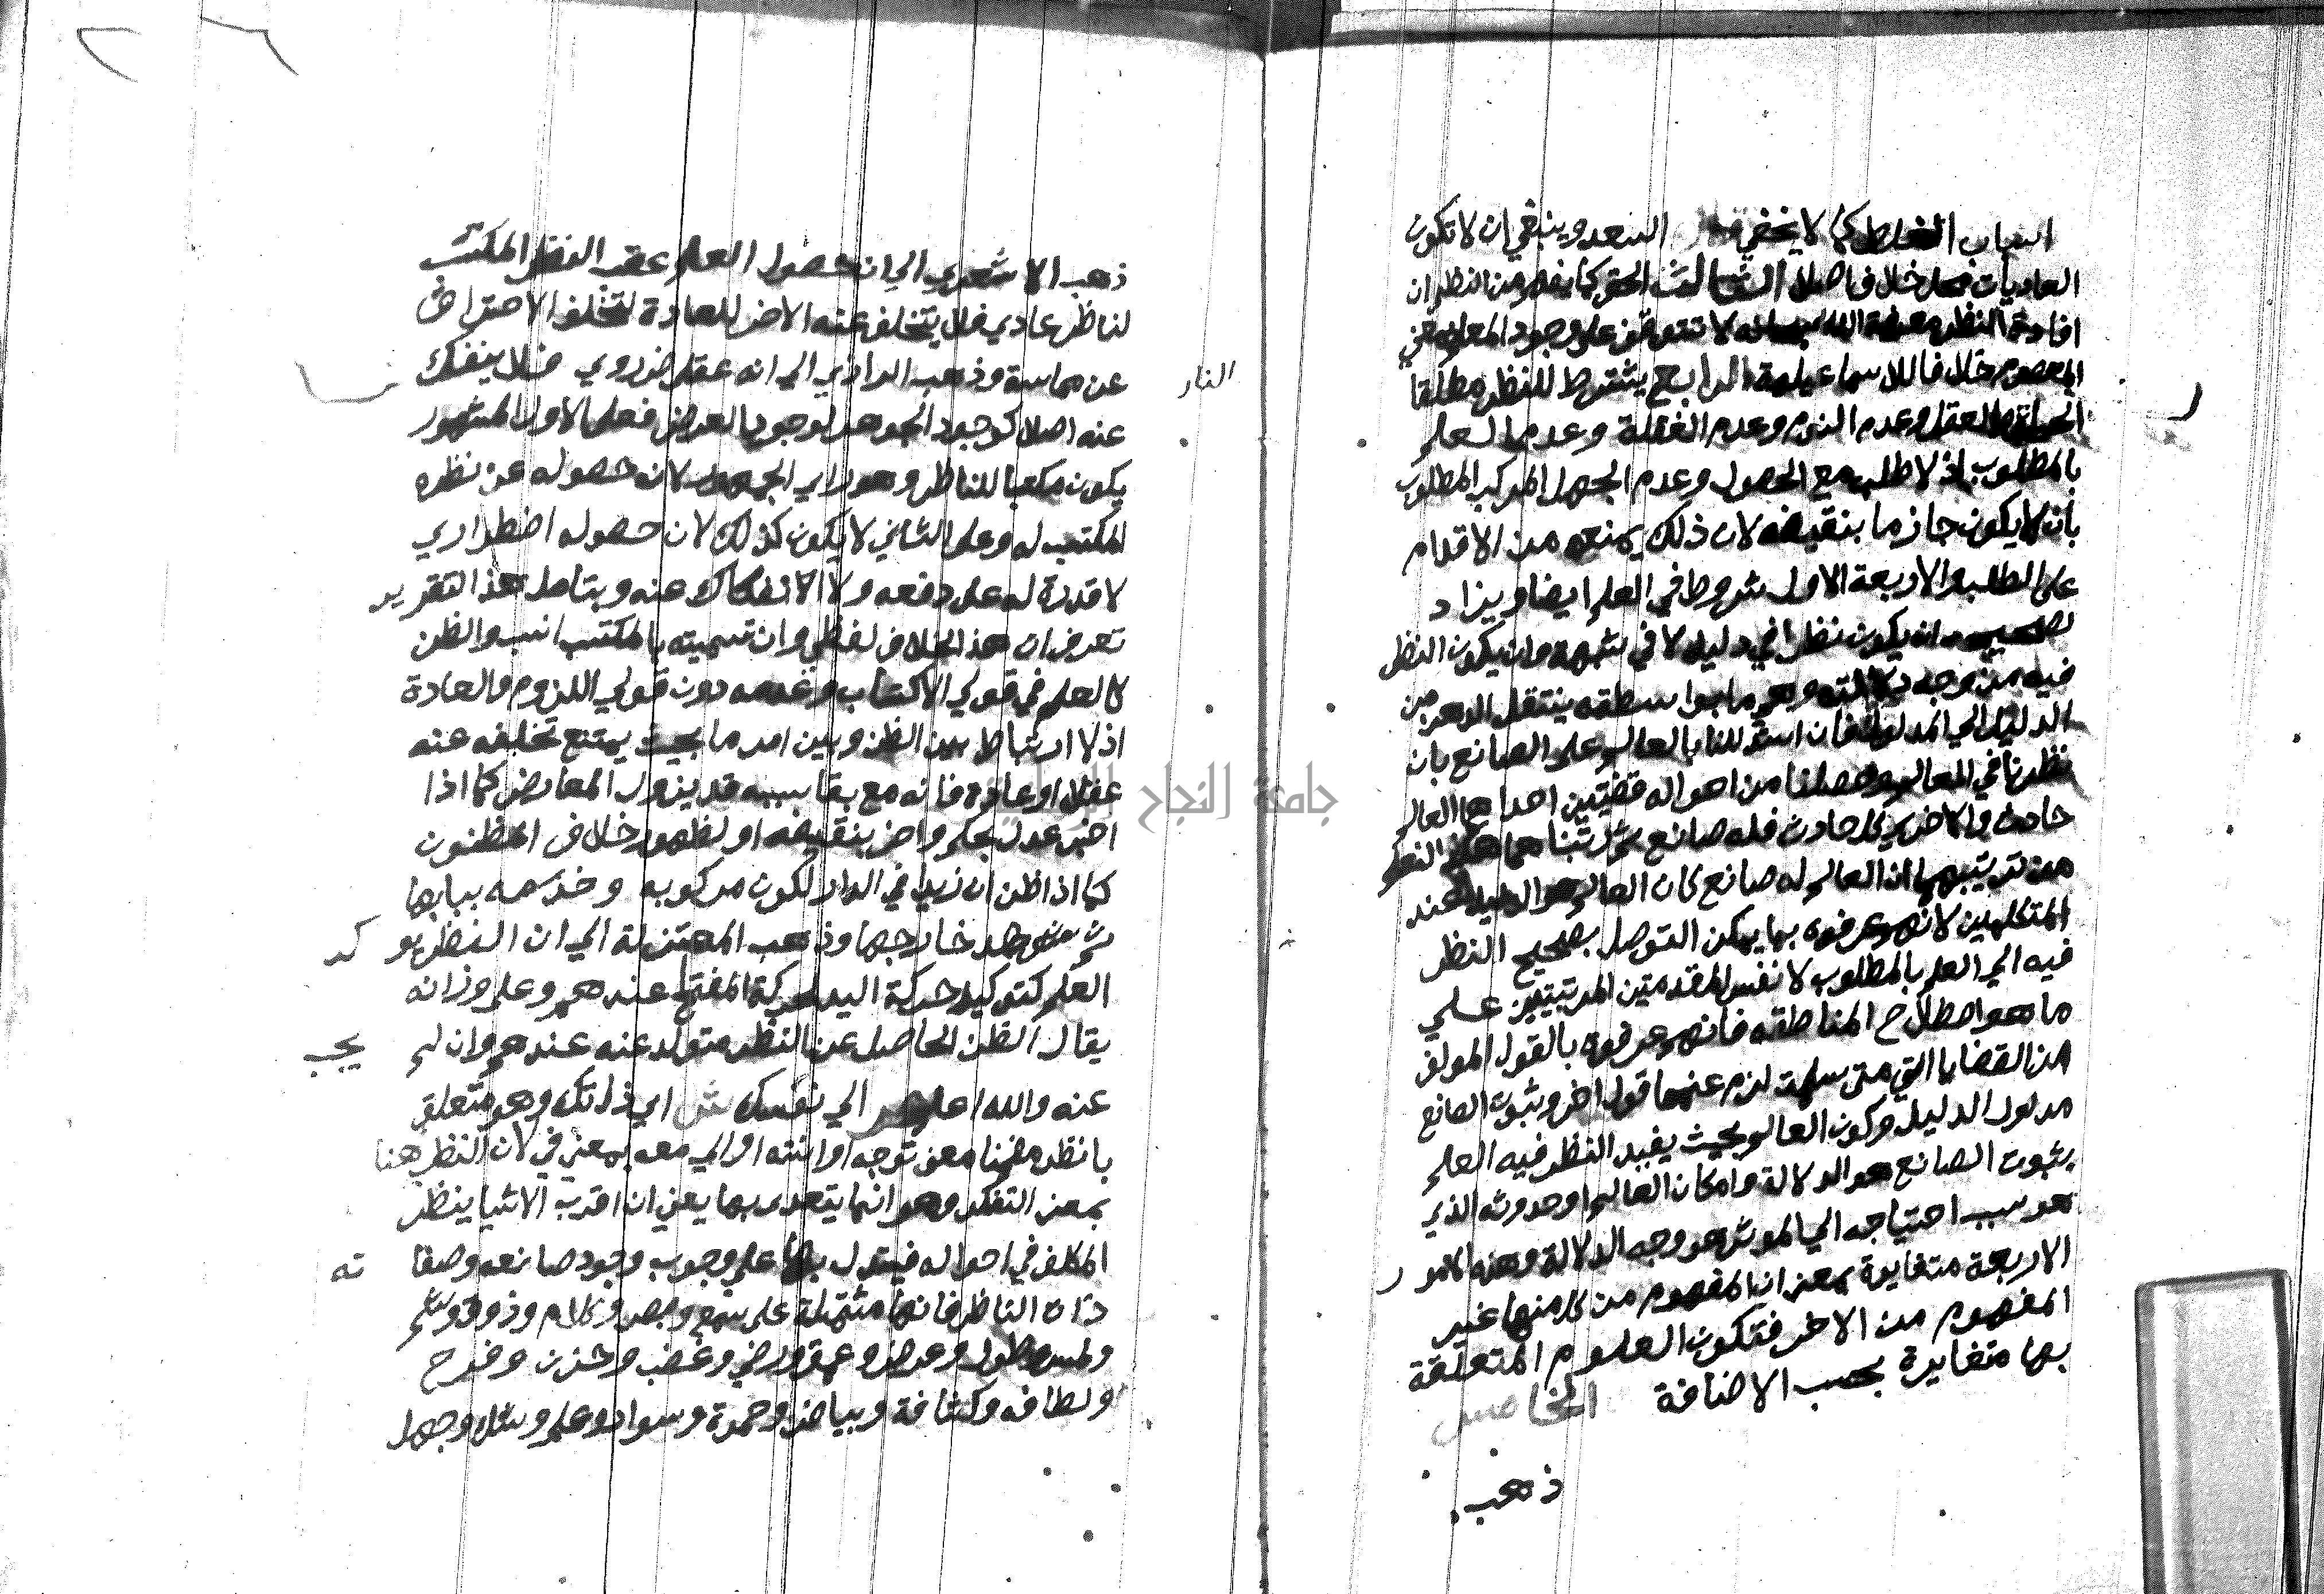 اسباب الغلط كما لا يخفي قال السعد وينبغي ان لا تكون
العاديات محل خلاف اصلا الثالث الحق كما يفهم من النظر ان
افادة النظر معرفة الله لا تتوقف على وجود المعلم يعني
المعصوم خلافا للاسماعيلية الرابع يشترط للنظر مطلقا
العقل وعدم النوم وعدم الغفلة وعدم العلم
بالمطلوب اذ لا طلب مع الحصول وعدم الجهل المركب المطلوب
بان لا يكون جازما بنقيضه لان ذلك يمنعه من الاقدام
على الطلب والاربعة الاول شروط في العلم ايضا ويزاد
لصحيحه ان يكون نظرا في دليل لا في شبهة وان يكون النظر
فيه من وجه دلالته وهو ما بواسطته ينتقل الذهن من
الدليل الى المدلول فان استدللنا بالعالم على الصانع بان
نظرنا في العالم وحصلنا من احواله قضيتين احداهما العالم
حادث والاخرى كل حادث فله صانع ثم رتبناهما هكذا لنعلم
من ترتيبهما ان العالم له صانع كان العالم هو الدليل عند
المتكلمين لانهم عرفوه بما يمكن التوصل بصحيح النظر
فيه الي العلم بالمطلوب لا نفس المقدمتين المرتبتين علي
ما هو اصطلاح المناطقه فانهم عرفوه بالقول المولف
من القضايا التي متى سلمت لزم عنها قول اخر وثبوت الصانع
مدلول الدليل وكون العالم بحيث يفيد النظر فيه العلم
بثبوت الصانع هو الدلالة وامكان العالم او حدوثه الذي
هو سبب احتياجه الي الموثر هو وجه الدلالة وهذه الامور
الاربعة متغايرة بمعنى ان المفهوم من كل منها غير
المفهوم من الاخر فتكون العلوم المتعلقة
بها متغايرة بحسب الاضافة الخامس
ذهب
ذهب الاشعري الي ان حصول العلم عقب النظر المكتسب
لناظر عادي فلا يتخلف عنه الا خرقا للعادة لتخلف الاحتراق
عن مماسة النار وذهب الرازي الي انه عقلي ضروري فلا ينفك
عنه اصلا كوجود الجوهر لوجود العرض فعلى الاول المشهور
يكون مكتسبا للناظر وهو راي الجمهور لان حصوله عن نظره
المكتسب له وعلى الثاني لا يكون كذلك لان حصوله اضطراري
لا قدرة له على دفعه ولا الانفكاك عنه وبتامل هذا التقرير
تعرف ان هذا الخلاف لفظي وان تسميته بالمكتسب انسب والظن
كالعلم في قولي الاكتساب وعدمه دون قولي اللزوم والعادة
اذ لا ارتباط بين الظن وبين امر ما بحيث يمتنع تخلفه عنه
عقلا او عادة فانه مع بقا سببه قد يزول لمعارض كما اذا
اخبر عدل بحكم واخر بنقيضه او لظهور خلاف المظنون
كما اذا ظن ان زيدا في الدار لكون مركوبه وخدمه ببابها
ثم شوهد خارجها وذهب المعتزلة الي ان النظر يولد
العلم كتوليد حركة اليد لحركة المفتاح عندهم وعلى وزانه
يقال الظن الحاصل عن النظر متولد عنه عندهم وان لم يجب
عنه والله اعلم الي نفسك ش اي ذاتك وهو متعلق
بانظر مضمنا معنى توجه او انته او الي معه بمعنى في لان النظر هنا
بمعنى التفكر وهو انما يتعدى بها يعني ان اقرب الاشيا ينظر
المكلف في احواله فيستدل بها على وجوب وجود صانعه وصفاته
ذات الناظر فانها مشتملة على سمع وبصر وكلام وذوق وشم
ولمس وطول وعرض وعمق ورضي وغضب وحزن وفرح
ولطافه وكثافة وبياض وحمرة وسواد وعلم وشك وجهل
جامعة النجاح الوطنية